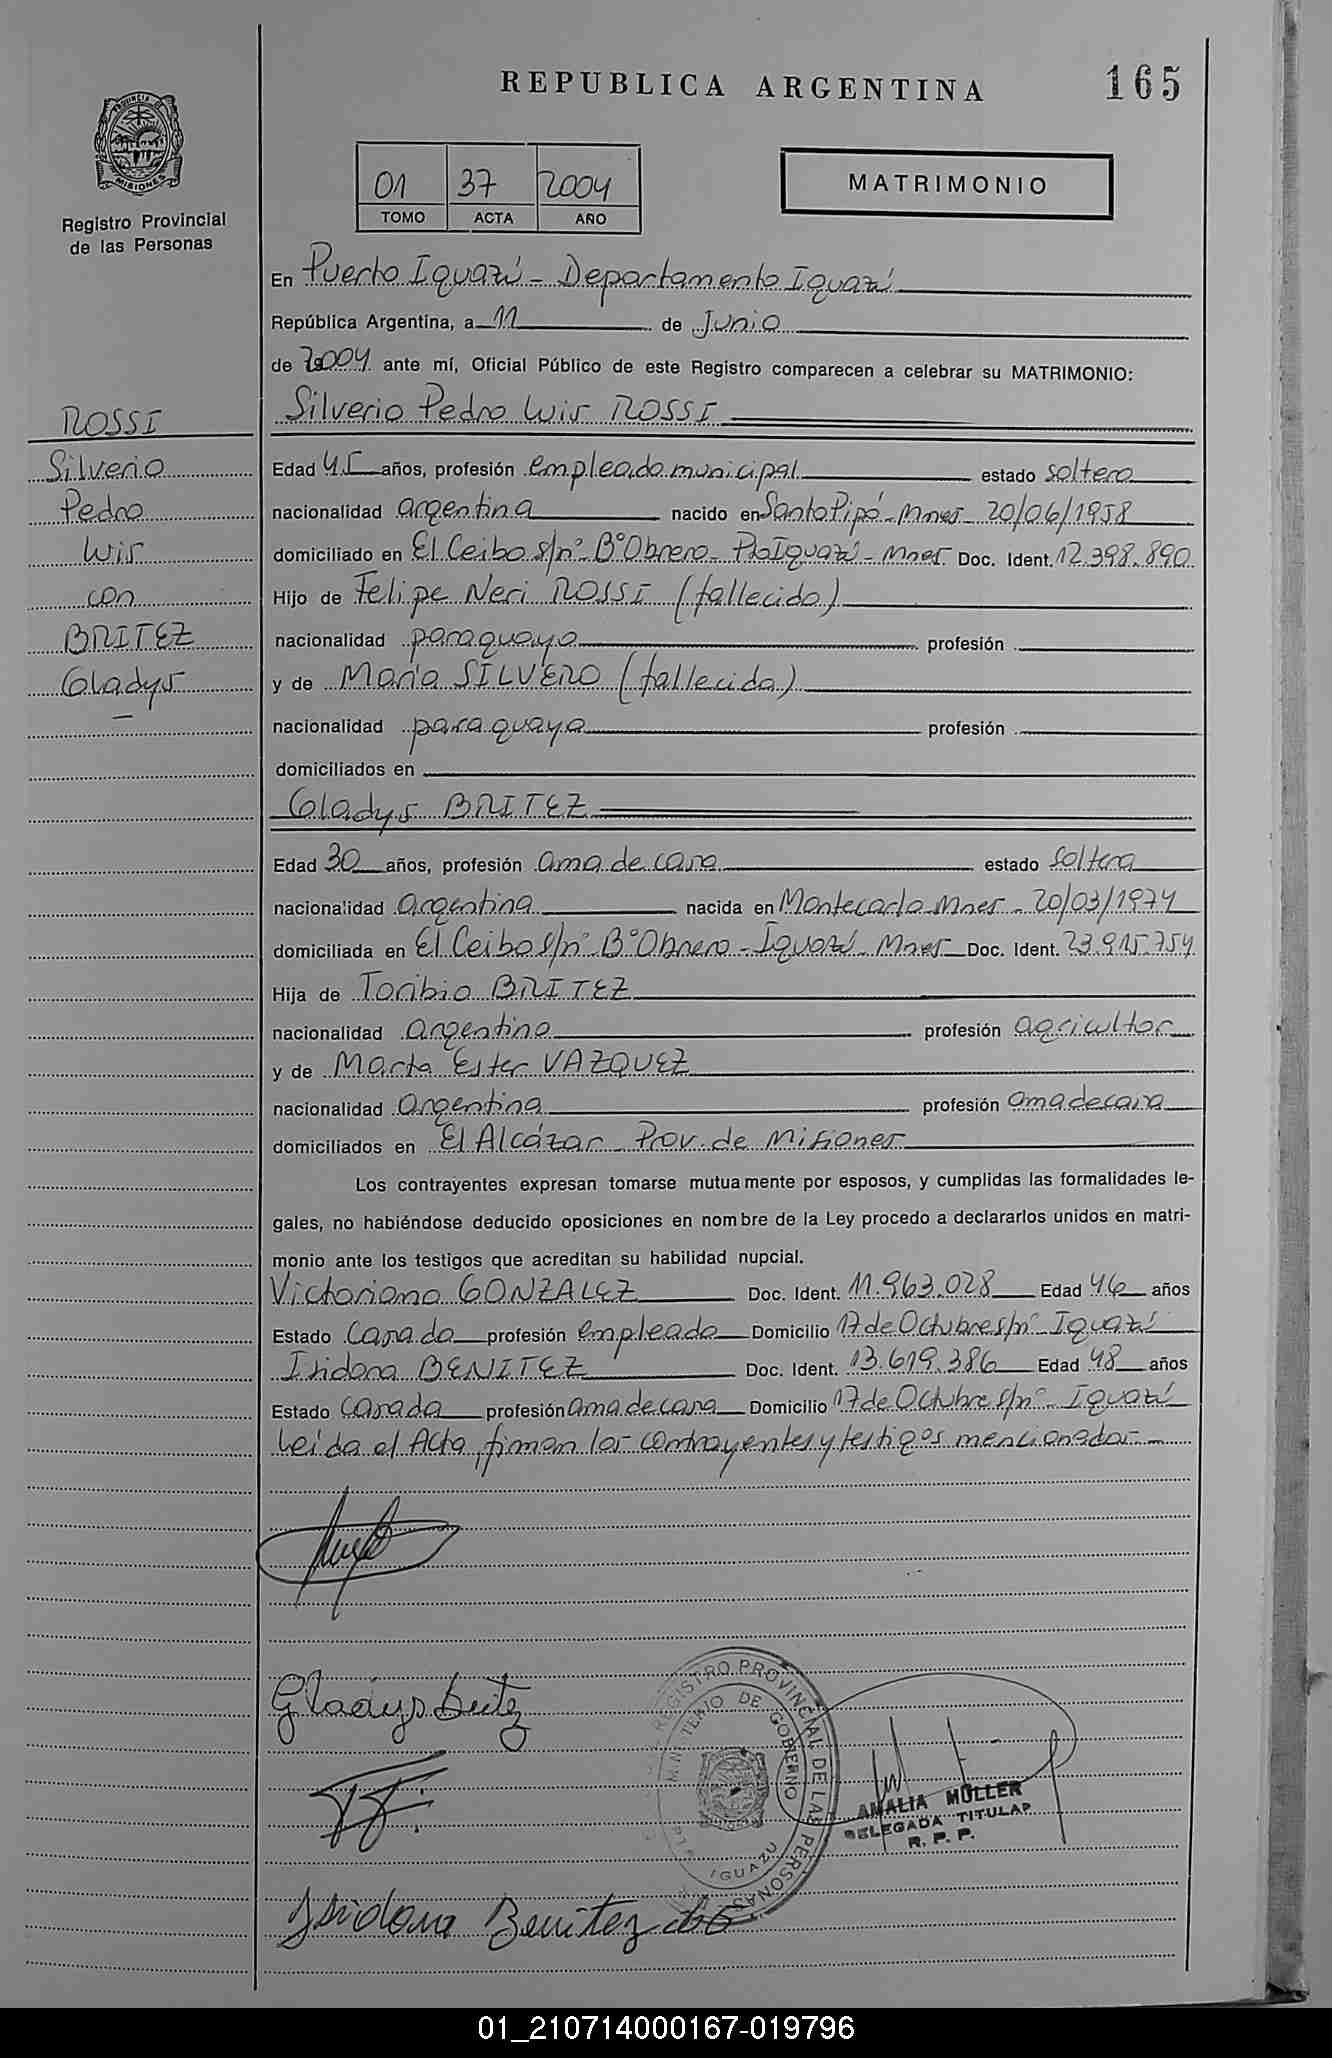 REPUBLICA ARGENTINA
165
PROVINCIA DE
MISIONES
Registro Provincial
de las Personas
01 37 2004
TOMO ACTA AÑO
MATRIMONIO
En Puerto Iguazú - Departamento Iguazú
República Argentina, a 11 de Junio
de 2004 ante mí, Oficial Público de este Registro comparecen a celebrar su MATRIMONIO:
ROSSI
Silverio
Pedro
Luis
con
BRITEZ
Gladys
Silverio Pedro Luis ROSSI
Edad 45 años, profesión empleado municipal estado soltero
nacionalidad argentina nacido en Santo Pipó - Mnes - 20/06/1958
domiciliado en El Ceibo s/nº Bº Obrero - Pto Iguazú - Mnes Doc. Ident. 12.398.890
Hijo de Felipe Neri ROSSI (fallecido)
nacionalidad paraguayo profesión
y de María SILVERO (fallecida)
nacionalidad paraguaya profesión
domiciliados en
Gladys BRITEZ
Edad 30 años, profesión ama de casa estado soltera
nacionalidad argentina nacida en Montecarlo Mnes - 20/03/1974
domiciliada en El Ceibo s/nº Bº Obrero - Iguazú - Mnes Doc. Ident. 23.915.754
Hija de Toribio BRITEZ
nacionalidad argentino profesión agricultor
y de Marta Ester VAZQUEZ
nacionalidad argentina profesión ama de casa
domiciliados en El Alcázar - Prov. de Misiones
Los contrayentes expresan tomarse mutuamente por esposos, y cumplidas las formalidades le-
gales, no habiéndose deducido oposiciones en nombre de la Ley procedo a declararlos unidos en matri-
monio ante los testigos que acreditan su habilidad nupcial.
Victoriano GONZALEZ Doc. Ident. 11.963.028 Edad 46 años
Estado casado profesión empleado Domicilio 17 de Octubre s/nº Iguazú
Isidora BENITEZ Doc. Ident. 13.619.386 Edad 48 años
Estado casada profesión ama de casa Domicilio 17 de Octubre s/nº - Iguazú
Leída el Acta, firman los contrayentes y testigos mencionados
Gladys Britez
REGISTRO PROVINCIAL DE LAS PERSONAS
MINISTERIO DE GOBIERNO
IGUAZU
AMALIA MÜLLER
DELEGADA TITULAR
R. P. P.
Isidora Benitez de G
01_210714000167-019796